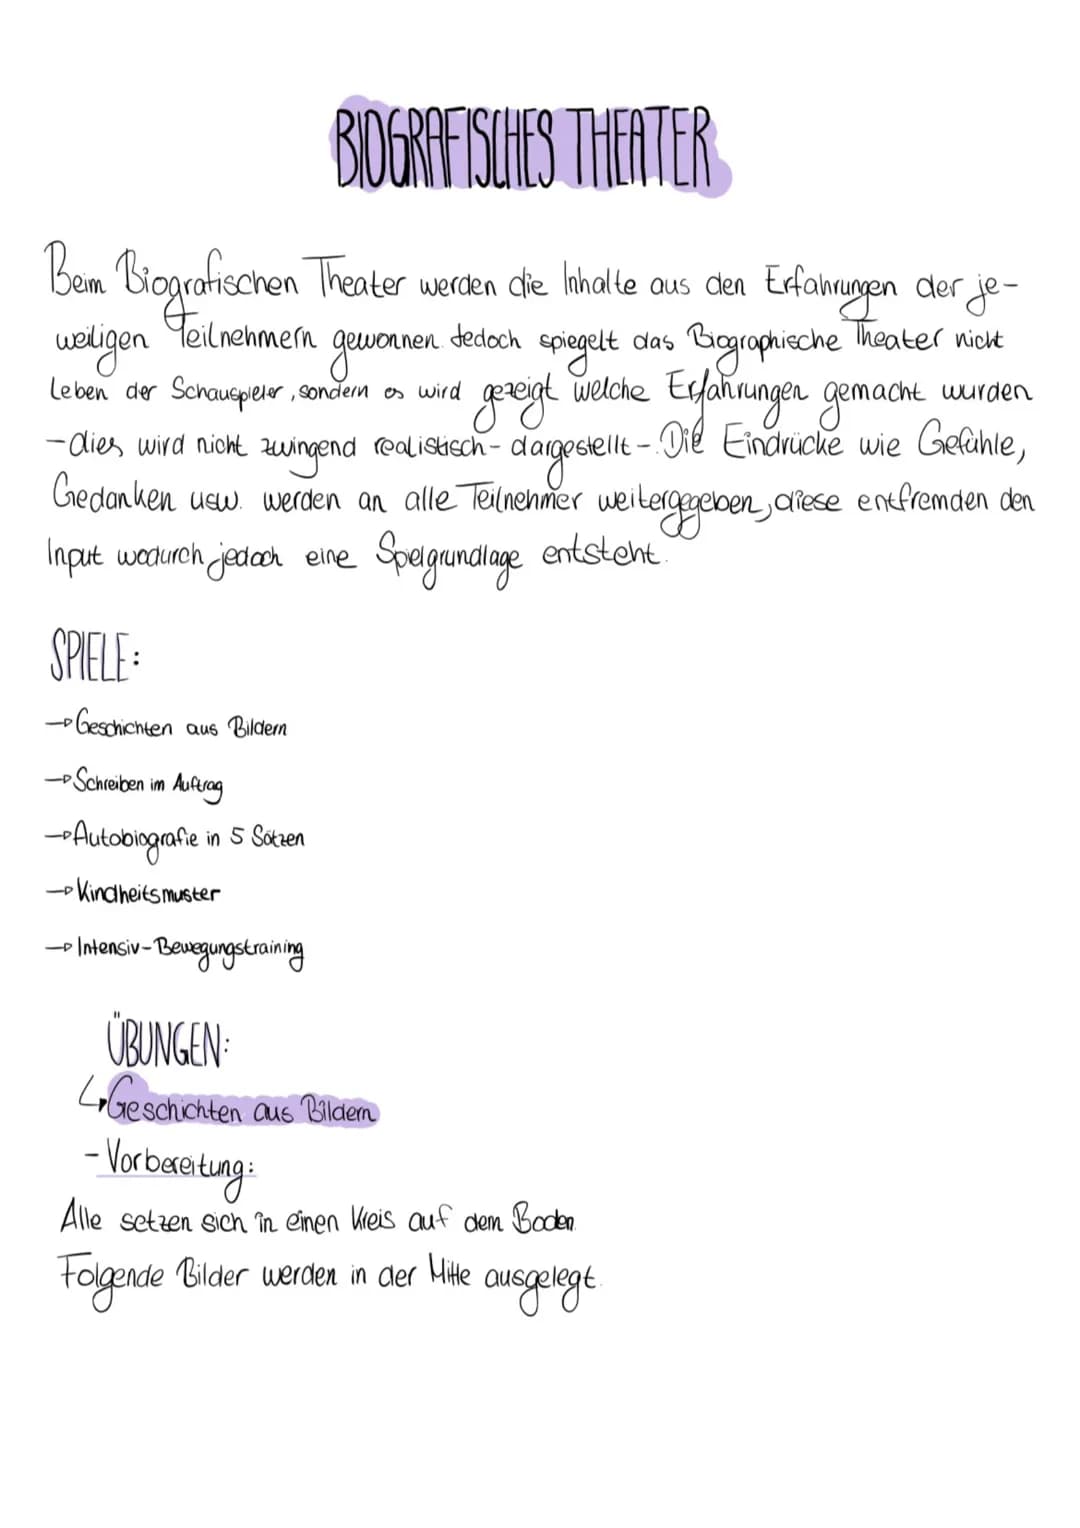 BIOGRAFISCHES THEATER
Beim Biografischen Theater werden die Inhalte aus den Erfahrungen der je-
weiligen Teilnehmern gewonnen. Jedoch spiegelt das Biographische Theater nicht
Leben der Schauspieler, sondern es wird gezeigt welche Erfahrungen gemacht wurden
- dies wird nicht zwingend realistisch - dargestellt -. Die Eindrücke wie Gefühle,
Gedanken usw. werden an alle Teilnehmer weitergegeben, diese entfremden den
Input wodurch jedoch eine Spielgrundlage entsteht.
SPIELE:
→ Geschichten aus Bildern
→ Schreiben im Auftrag
→ Autobiografie in 5 Sätzen
→ Kindheitsmuster
→ Intensiv-Bewegungstraining
ÜBUNGEN:
↳ Geschichten aus Bildern
- Vorbereitung:
Alle setzen sich in einen Kreis auf dem Boden.
Folgende Bilder werden in der Mitte ausgelegt.